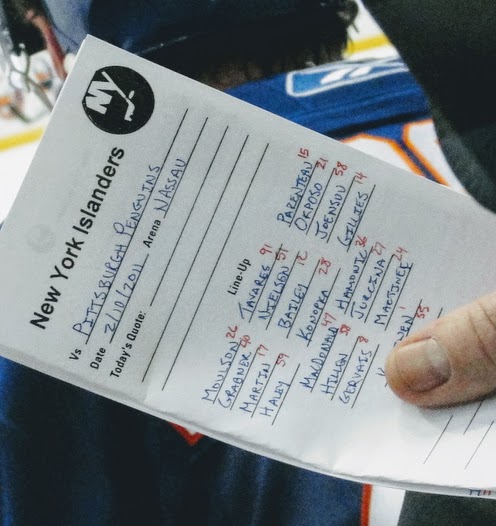 NY
New York Islanders
Vs PITTSBURGH PENGUINS
Date 2/10/2011 Arena NASSAU
Today's Quote:
Line-Up
MOULSON 26 TAVARES 91 PARENTEAU 15
GRABNER 40 NIELSEN 51 OKPOSO 21
MARTIN 17 BAILEY 12 JOENSUU 58
HALEY 59 KONOPKA 28 GILLIES 14
MACDONALD 47 HAMONIC 36
HILLEN 38 JURCINA 27
GERVAIS 8 MARTINEK 24
55